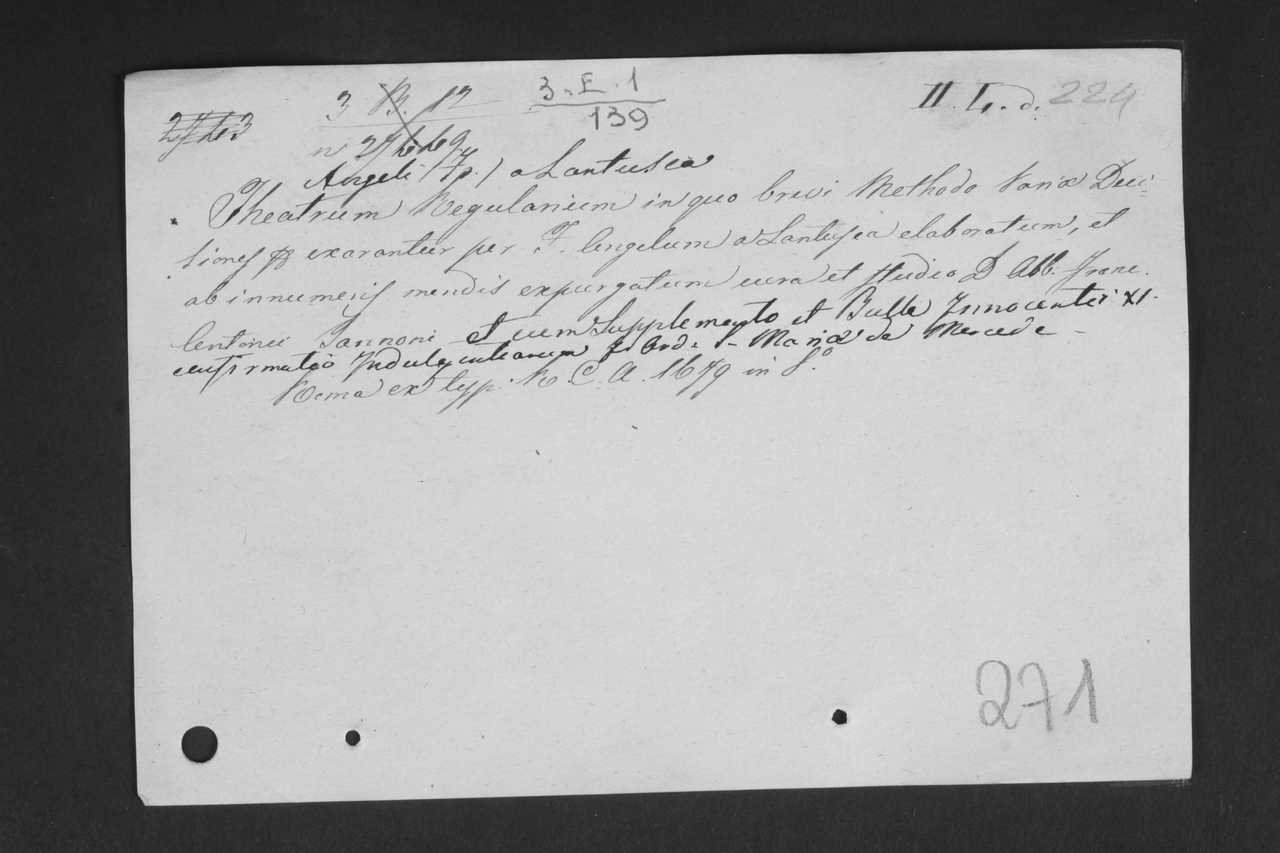 3 B. 12 3. E. 1 II. L. d. 224
139
Angeli (F.) a Lantusca
Theatrum Regularium in quo brevi Methodo Variæ Deci-
siones exarantur per F. Angelum a Lantusca elaboratum, et
ab innumeris mendis expurgatum cura et studio D. Abb. Franc.
Antonii Sannoni et cum Supplemento et Bulla Innocentii XI.
Indulgentiarum Ord. S. Mariæ de Mercede -
Romæ ex typ. R. C. A. 1679 in 8.o
271